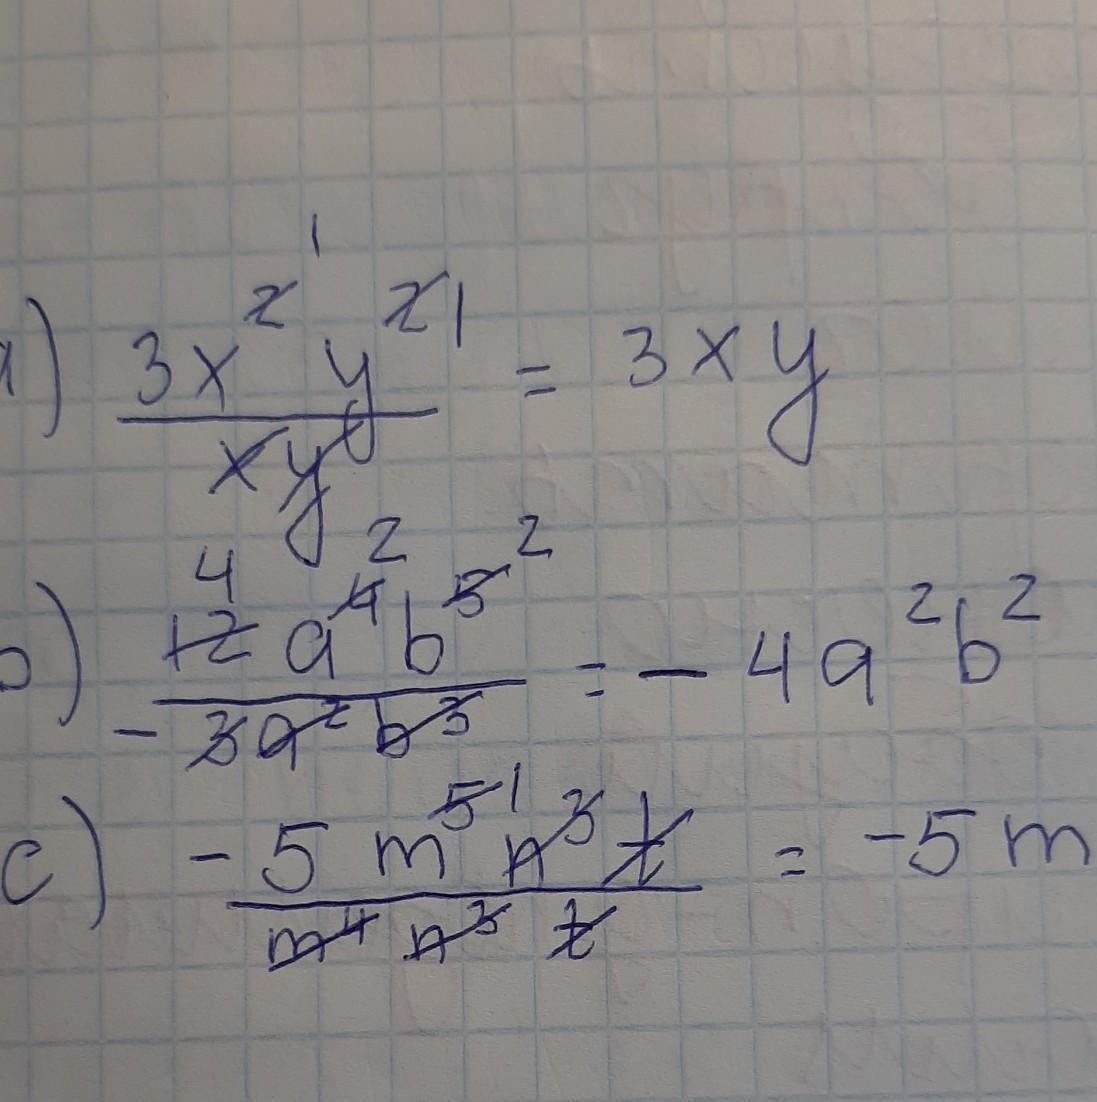 a) 3x² ¹ y² ¹ / xy = 3xy
b) 12 4 a⁴ ² b⁵ ² / -3a²b³ = -4a²b²
c) -5m⁵ ¹ n³ t / m⁴ n³ t = -5m